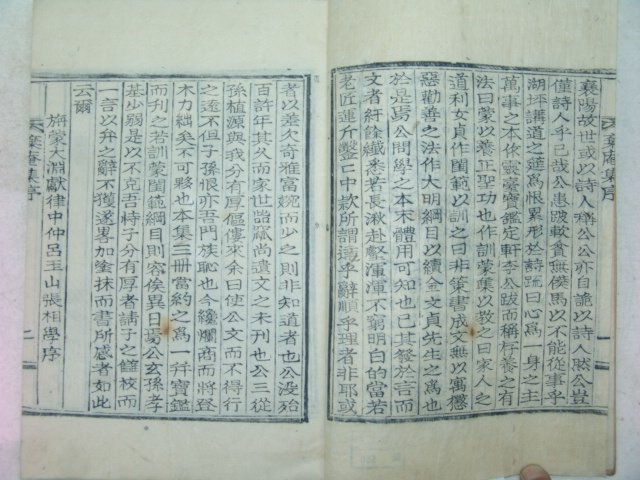 襄陽故世或以詩人稱公公亦自詭以詩人然公豈
僅詩人乎已哉公患跛較貧無僕馬以不能從事乎
湖坪講道之筵爲恨累形於詩疏曰心爲一身之主
萬事之本作靈臺寶鑑定軒李公跋而稱存養之有
法曰蒙以養正聖功也作訓蒙集以敎之曰家人之
道利女貞作閨範以訓之曰非策書成文無以寓懲
惡勸善之法作大綱目以續金文貞先生之爲也
於是焉公問學之本末體用可知也已其發於言而
文者紆餘纖悉若長湫赴壑渾渾不窮明白的當若
老匠運斤鑿鑿中款所謂達乎辭順乎理者非耶或
者以差欠奇雅富婉而少之則非知道者也公沒殆
百許年其久而家世詒藏尚遺文之未刊也公三從
孫植源與我分有厚傴僂來余曰使公文而不得行
之遠不但子孫恨亦吾門族恥也今纔爛商而將登
木力絀矣不可夥也本集三冊當約之爲一幷寶鑑
而刊之若訓蒙閨範綱目則容俟異日焉公玄孫孝
基少弱是以不克吾椅子分有厚者請子之讎校而
一言以弁之辭不獲遂畧加塗抹而書所感者如此
云爾
旃蒙大淵獻律中仲呂玉山張相學序
集序
集序
二